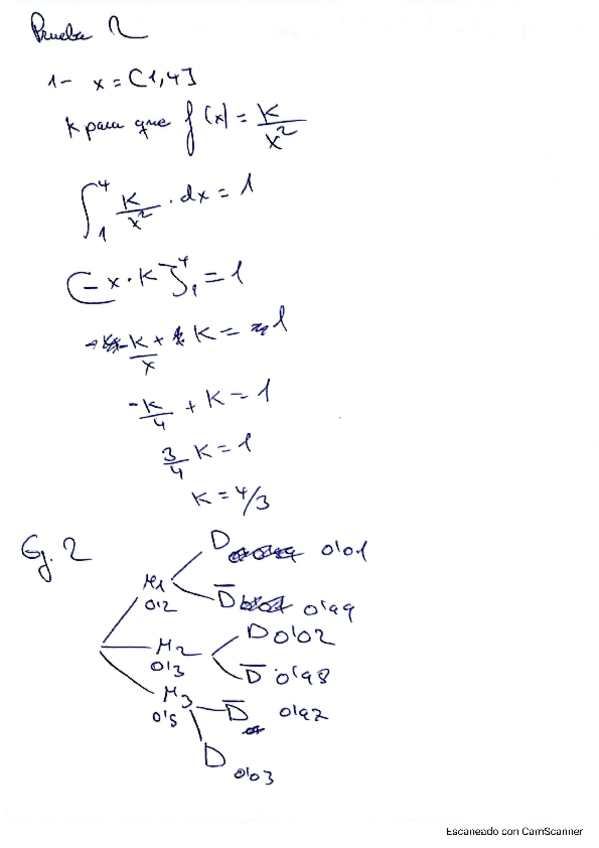 Prueba 2
1- x = (1,4]
K para que f(x) = K/x²
∫₁⁴ K/x² · dx = 1
[-x · K]₁⁴ = 1
-K/x + K = 1
-K/4 + K = 1
3/4 K = 1
K = 4/3
Ej. 2
D 0'01
M1 0'2
D̅ 0'99
D 0'02
M2 0'3
D̅ 0'98
M3 0'5
D̅ 0'97
D 0'03
Escaneado con CamScanner